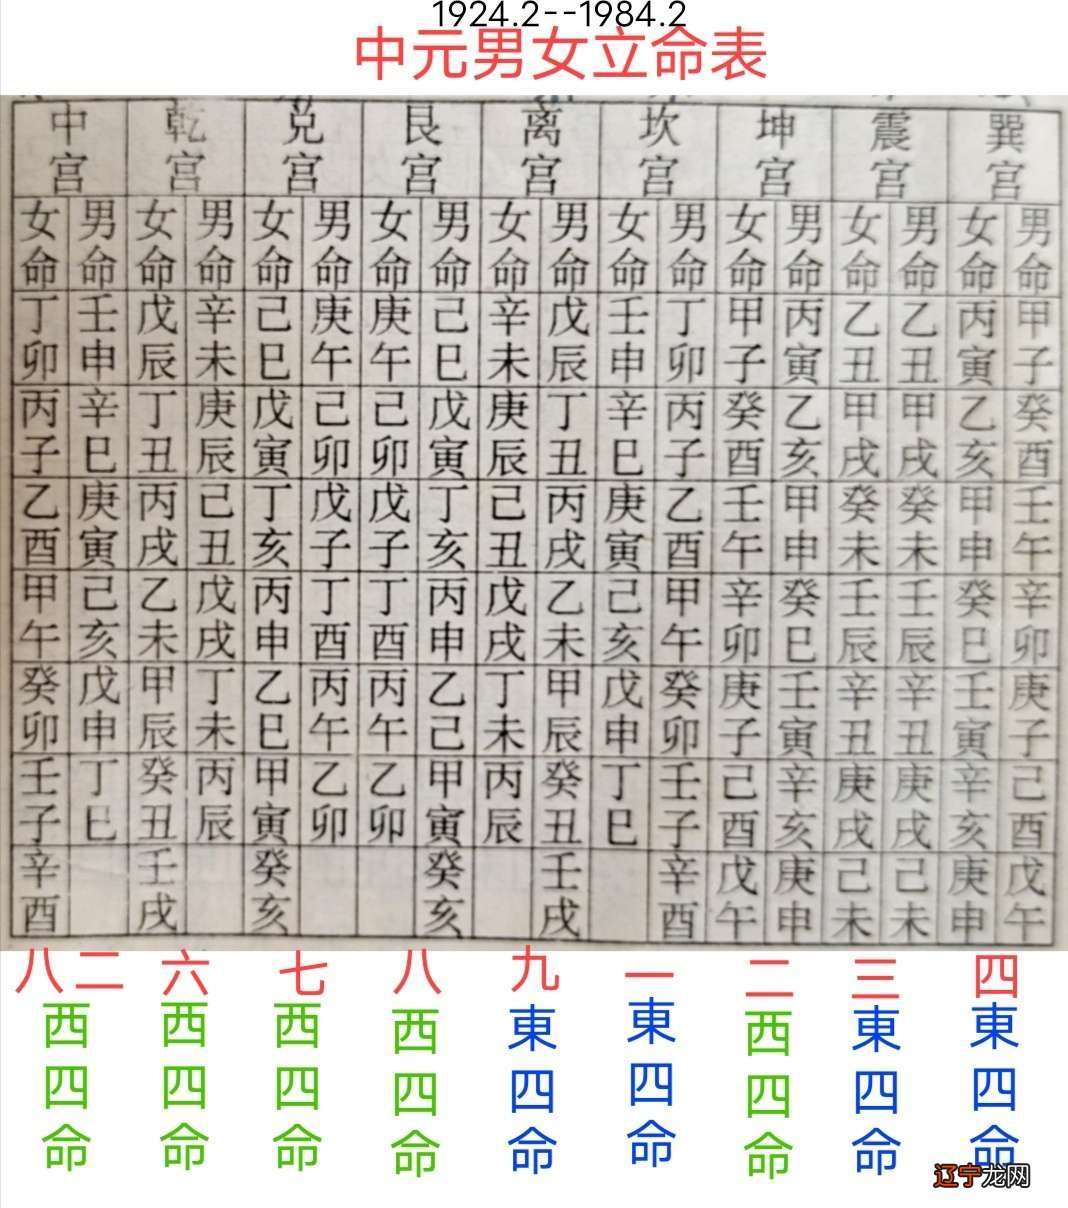 1924.2--1984.2
中元男女立命表
中宫 乾宫 兑宫 艮宫 离宫 坎宫 坤宫 震宫 巽宫
女命 男命 女命 男命 女命 男命 女命 男命 女命 男命 女命 男命 女命 男命 女命 男命 女命 男命
丁卯 壬申 戊辰 辛未 己巳 庚午 庚午 己巳 辛未 戊辰 壬申 丁卯 甲子 丙寅 乙丑 乙丑 丙寅 甲子
丙子 辛巳 丁丑 庚辰 戊寅 己卯 己卯 戊寅 庚辰 丁丑 辛巳 丙子 癸酉 乙亥 甲戌 甲戌 乙亥 癸酉
乙酉 庚寅 丙戌 己丑 丁亥 戊子 戊子 丁亥 己丑 丙戌 庚寅 乙酉 壬午 甲申 癸未 癸未 甲申 壬午
甲午 己亥 乙未 戊戌 丙申 丁酉 丁酉 丙申 戊戌 乙未 己亥 甲午 辛卯 癸巳 壬辰 壬辰 癸巳 辛卯
癸卯 戊申 甲辰 丁未 乙巳 丙午 丙午 乙己 丁未 甲辰 戊申 癸卯 庚子 壬寅 辛丑 辛丑 壬寅 庚子
壬子 丁巳 癸丑 丙辰 甲寅 乙卯 乙卯 甲寅 丙辰 癸丑 丁巳 壬子 己酉 辛亥 庚戌 庚戌 辛亥 己酉
辛酉 壬戌 癸亥 癸亥 壬戌 辛酉 戊午 庚申 己未 己未 庚申 戊午
八二 六 七 八 九 一 二 三 四
西四命 西四命 西四命 西四命 東四命 東四命 西四命 東四命 東四命
辽宁龙网